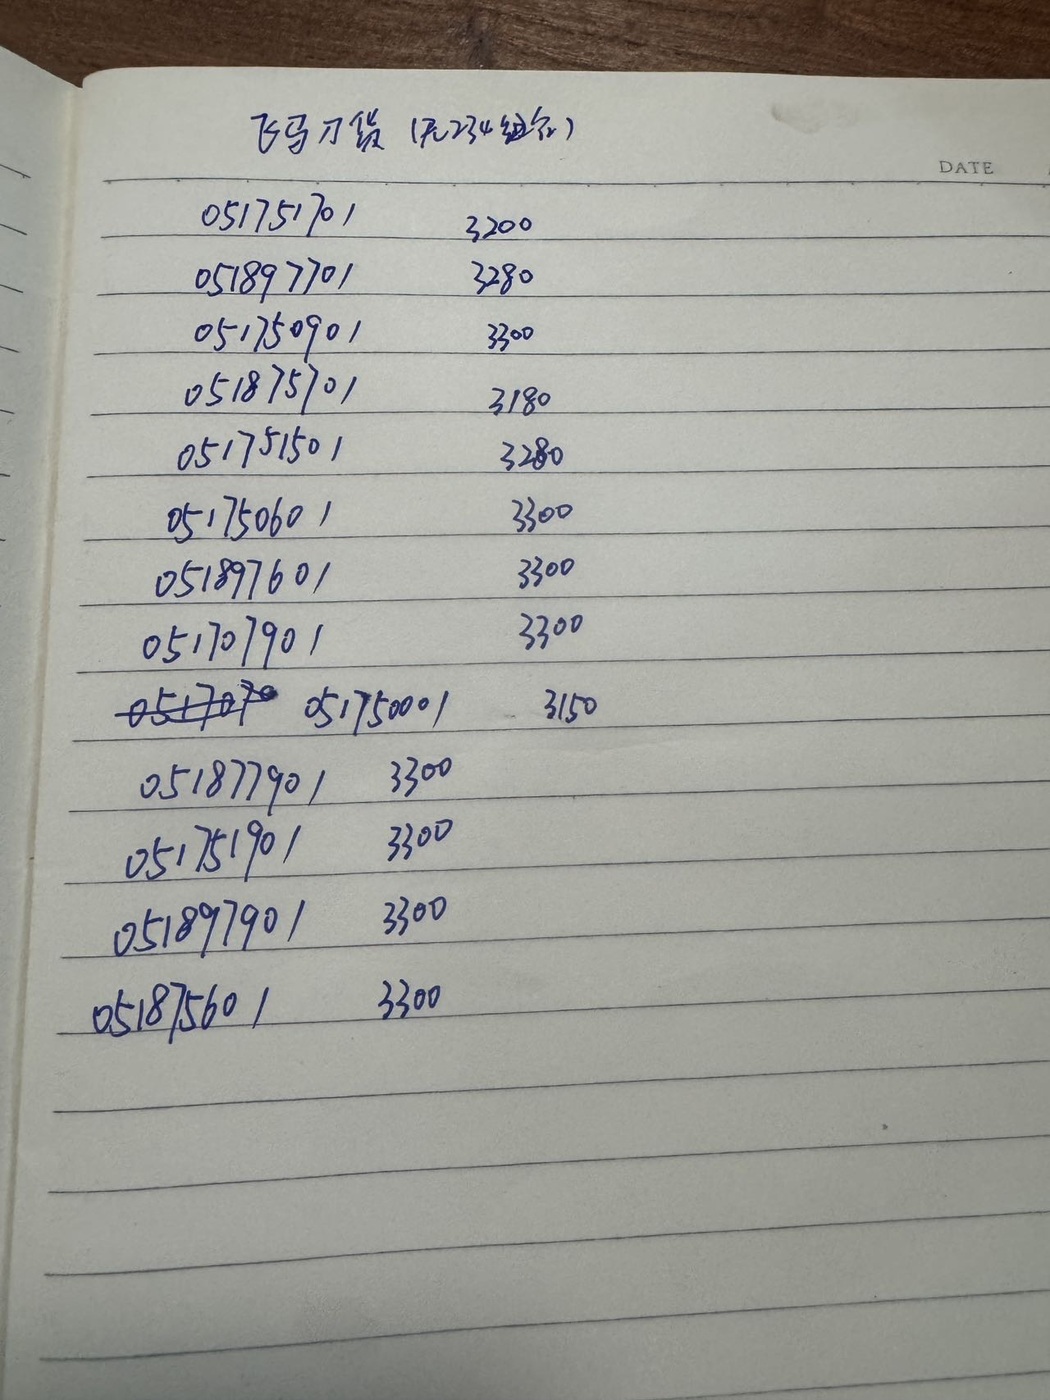 飞马刀货（无234组合）
DATE
051751701 3200
051897701 3280
051750901 3300
051875701 3180
051751501 3280
051750601 3300
051897601 3300
051707901 3300
0517070 051750001 3150
051877901 3300
051751901 3300
051897901 3300
051875601 3300